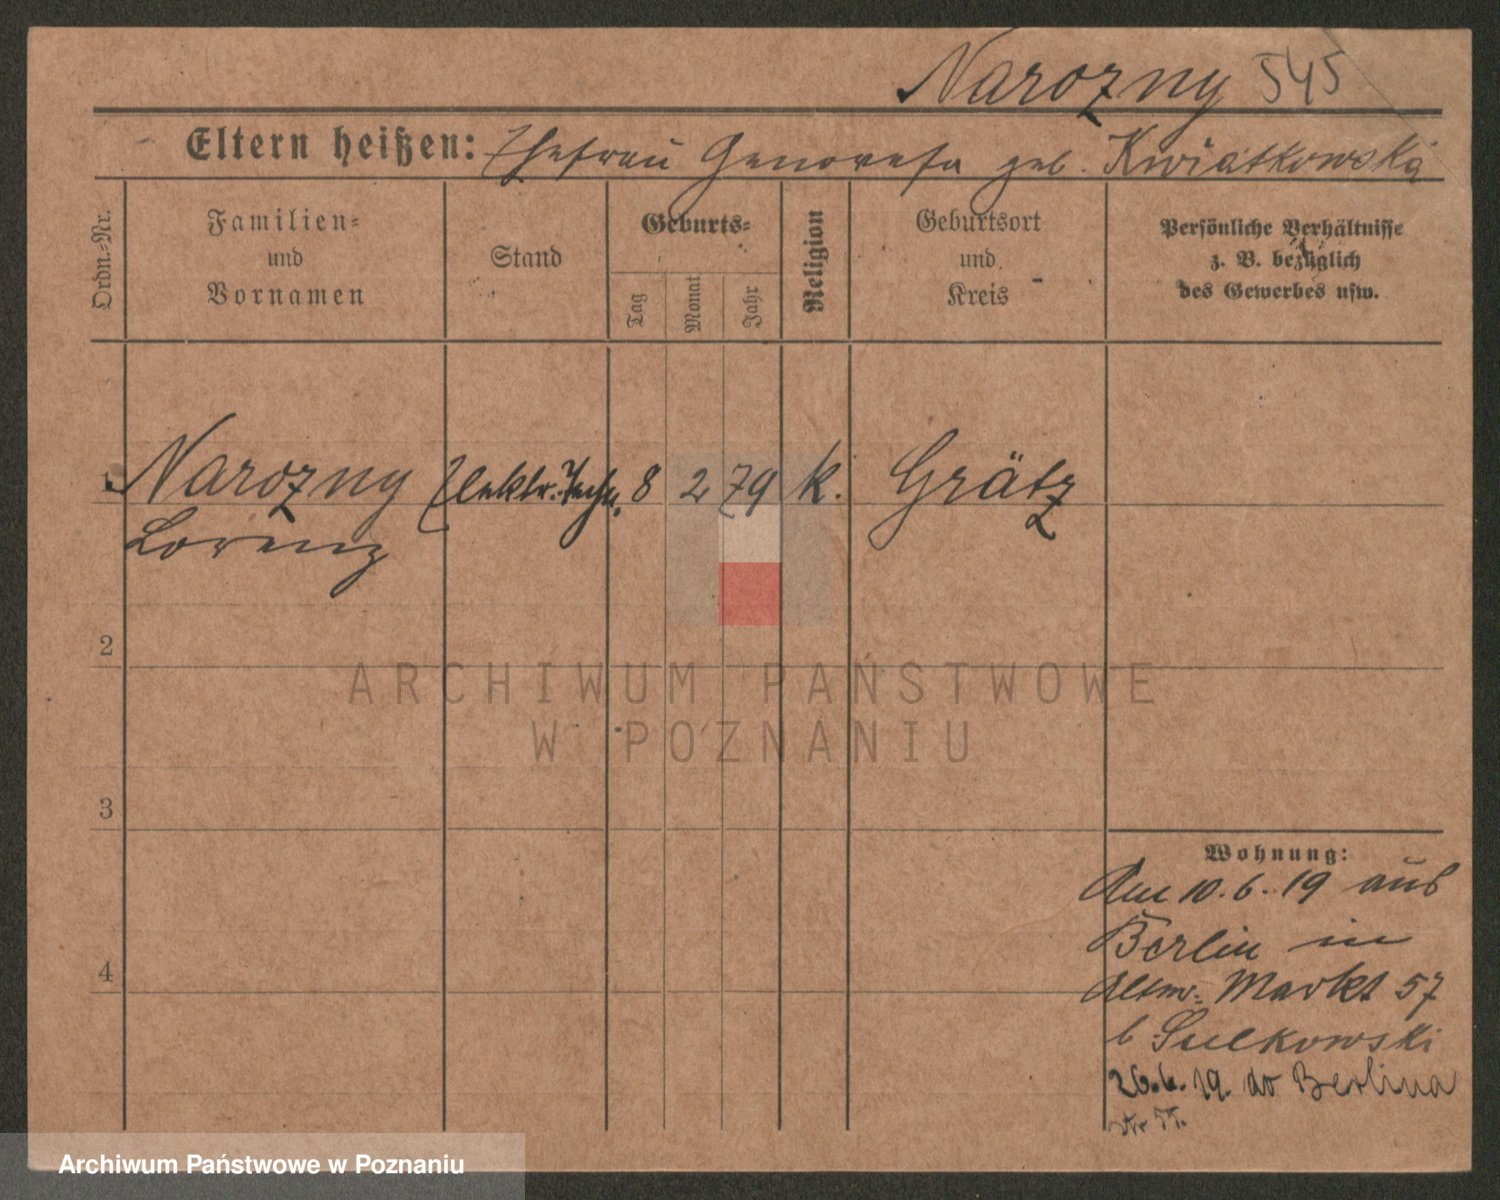 Narozny 545
Eltern heißen: Ehefrau Genovefa geb. Kwiatkowska
Ordn.-Nr.
Familien-
und
Vornamen
Stand
Geburts-
Tag
Monat
Jahr
Religion
Geburtsort
und
Kreis
Persönliche Verhältnisse
z. B. bezüglich
des Gewerbes usw.
1 Narozny Elektr. Techn. 8 2 79 k. Grätz
Lorenz
2
3
4
Wohnung:
Am 10.6.19 aus
Berlin in
Markt 57
b Sulkowski
26.6.19. do Berlina
ARCHIWUM PAŃSTWOWE
W POZNANIU
Archiwum Państwowe w Poznaniu